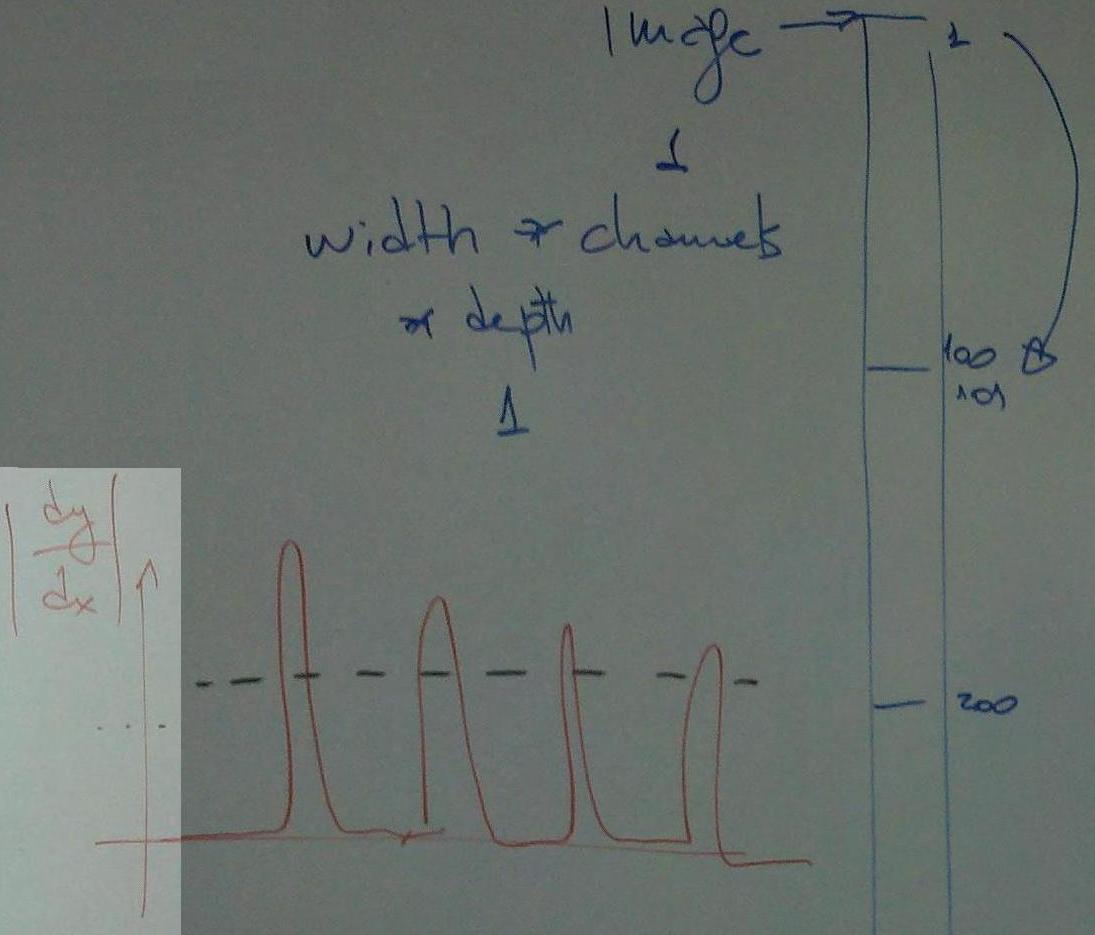 Image → 1
1
width * channels
* depth
1
100
101
200
|dy/dx|